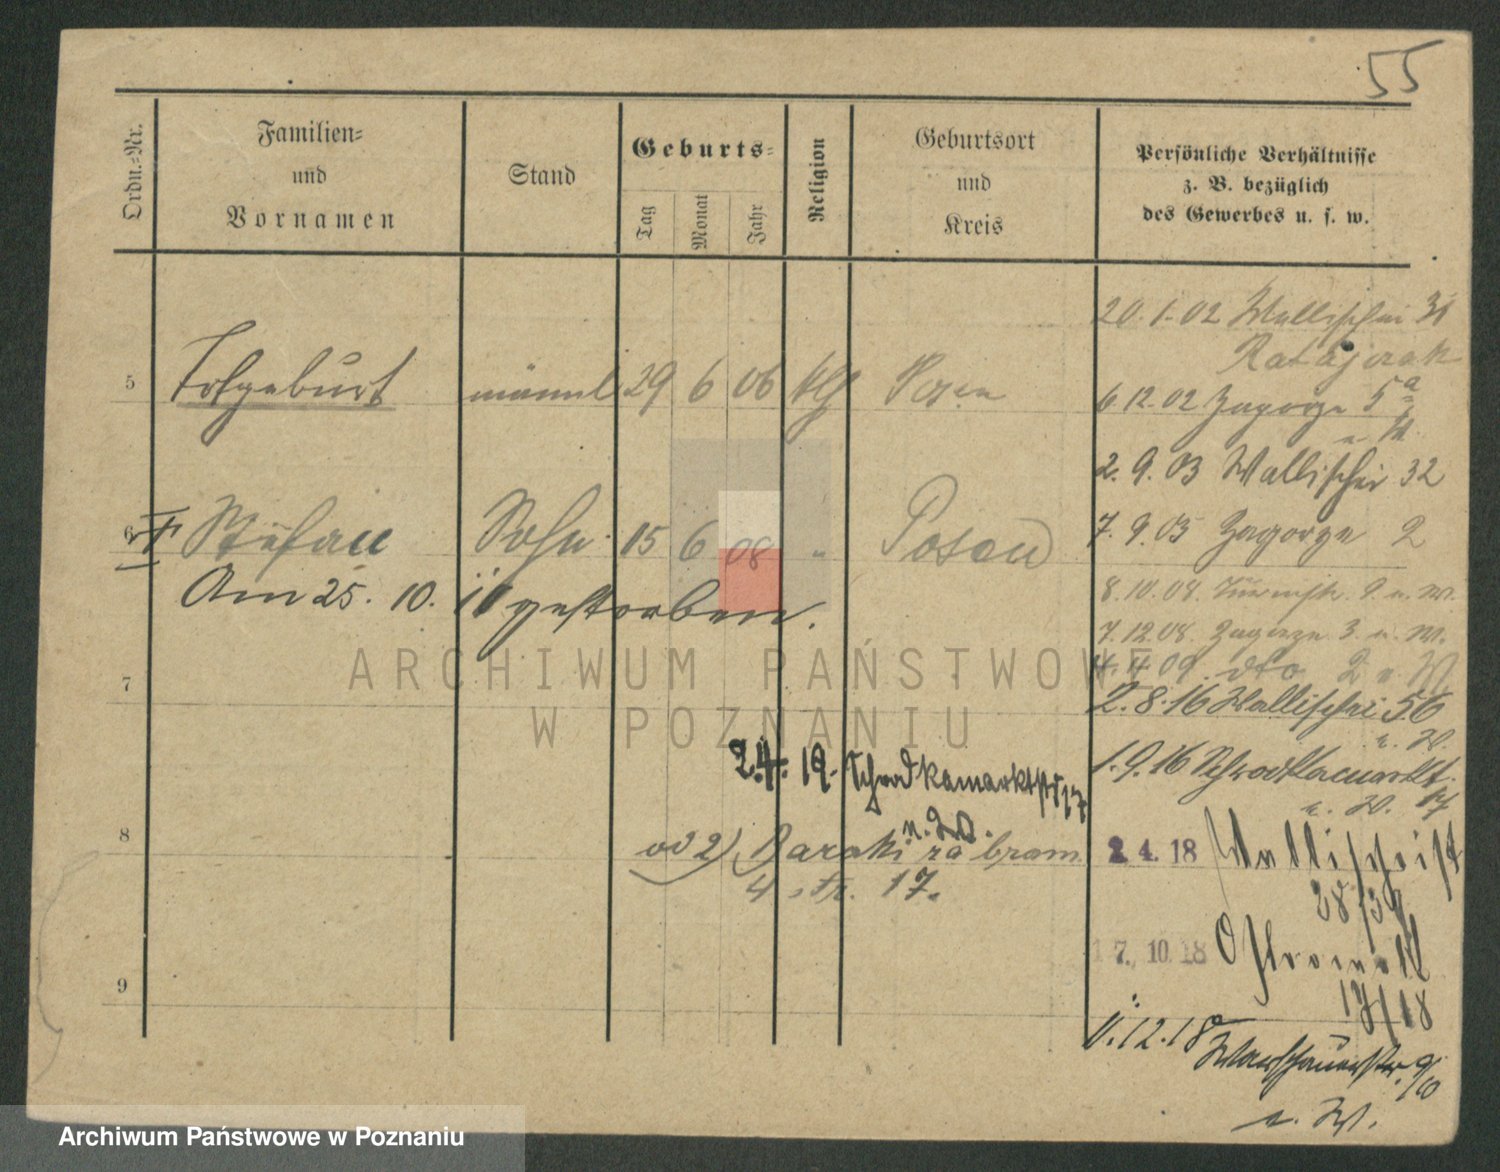 55
Ordn.-Nr.
Familien-
und
Vornamen
Stand
Geburts-
Tag
Monat
Jahr
Religion
Geburtsort
und
Kreis
Persönliche Verhältnisse
z. B. bezüglich
des Gewerbes u. s. w.
20.1.02 Wallischei 31
Ratajczak
5 Totgeburt männl 29 6 06 kth Posen
6.12.02 Zagorze 5a
2.9.03 Wallischei 32
6 † Stefan Sohn 15 6 08 " Posen
7.9.05 Zagorze 2
Am 25. 10. 10 gestorben.
8.10.08. 9 u. W.
7.12.08. Zagorze 3 u. W.
4.4.09. dto 2 u W.
7
2.8.16 Wallischei 56
u. W.
1.9.16 Schrodkamarkt
u. W. 17
2.4. 19. Schrodkamarktstr 17
u. W.
8
od 2) Baraki za bram
4, str. 17.
2.4.18 Wallischeist
28/39
17.10.18 Ostrowek
17/18
9
11.12.18 Warschauerstr. 9/10
u. W.
ARCHIWUM PAŃSTWOWE
W POZNANIU
Archiwum Państwowe w Poznaniu